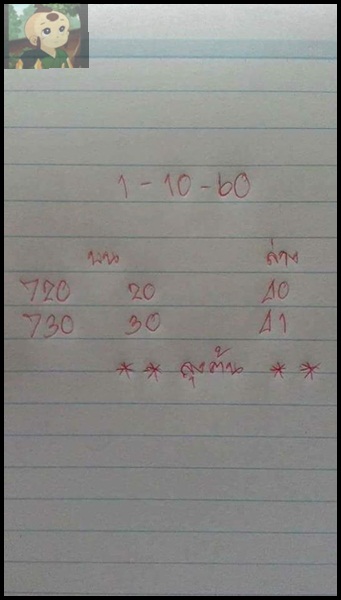 1-10-60
บน ล่าง
720 20 40
730 30 41
** ลุงต้น **